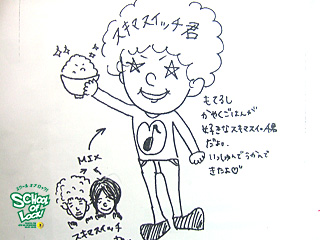 スキマスイッチ君
もてるし
かやくごはんが
好きなスキマスイッチ君
だよ。
いっしゅんでうかんで
きたよ♡
MIX
スキマスイッチ
スクール オブ ロック!
SCHOOL
OF
LOCK!